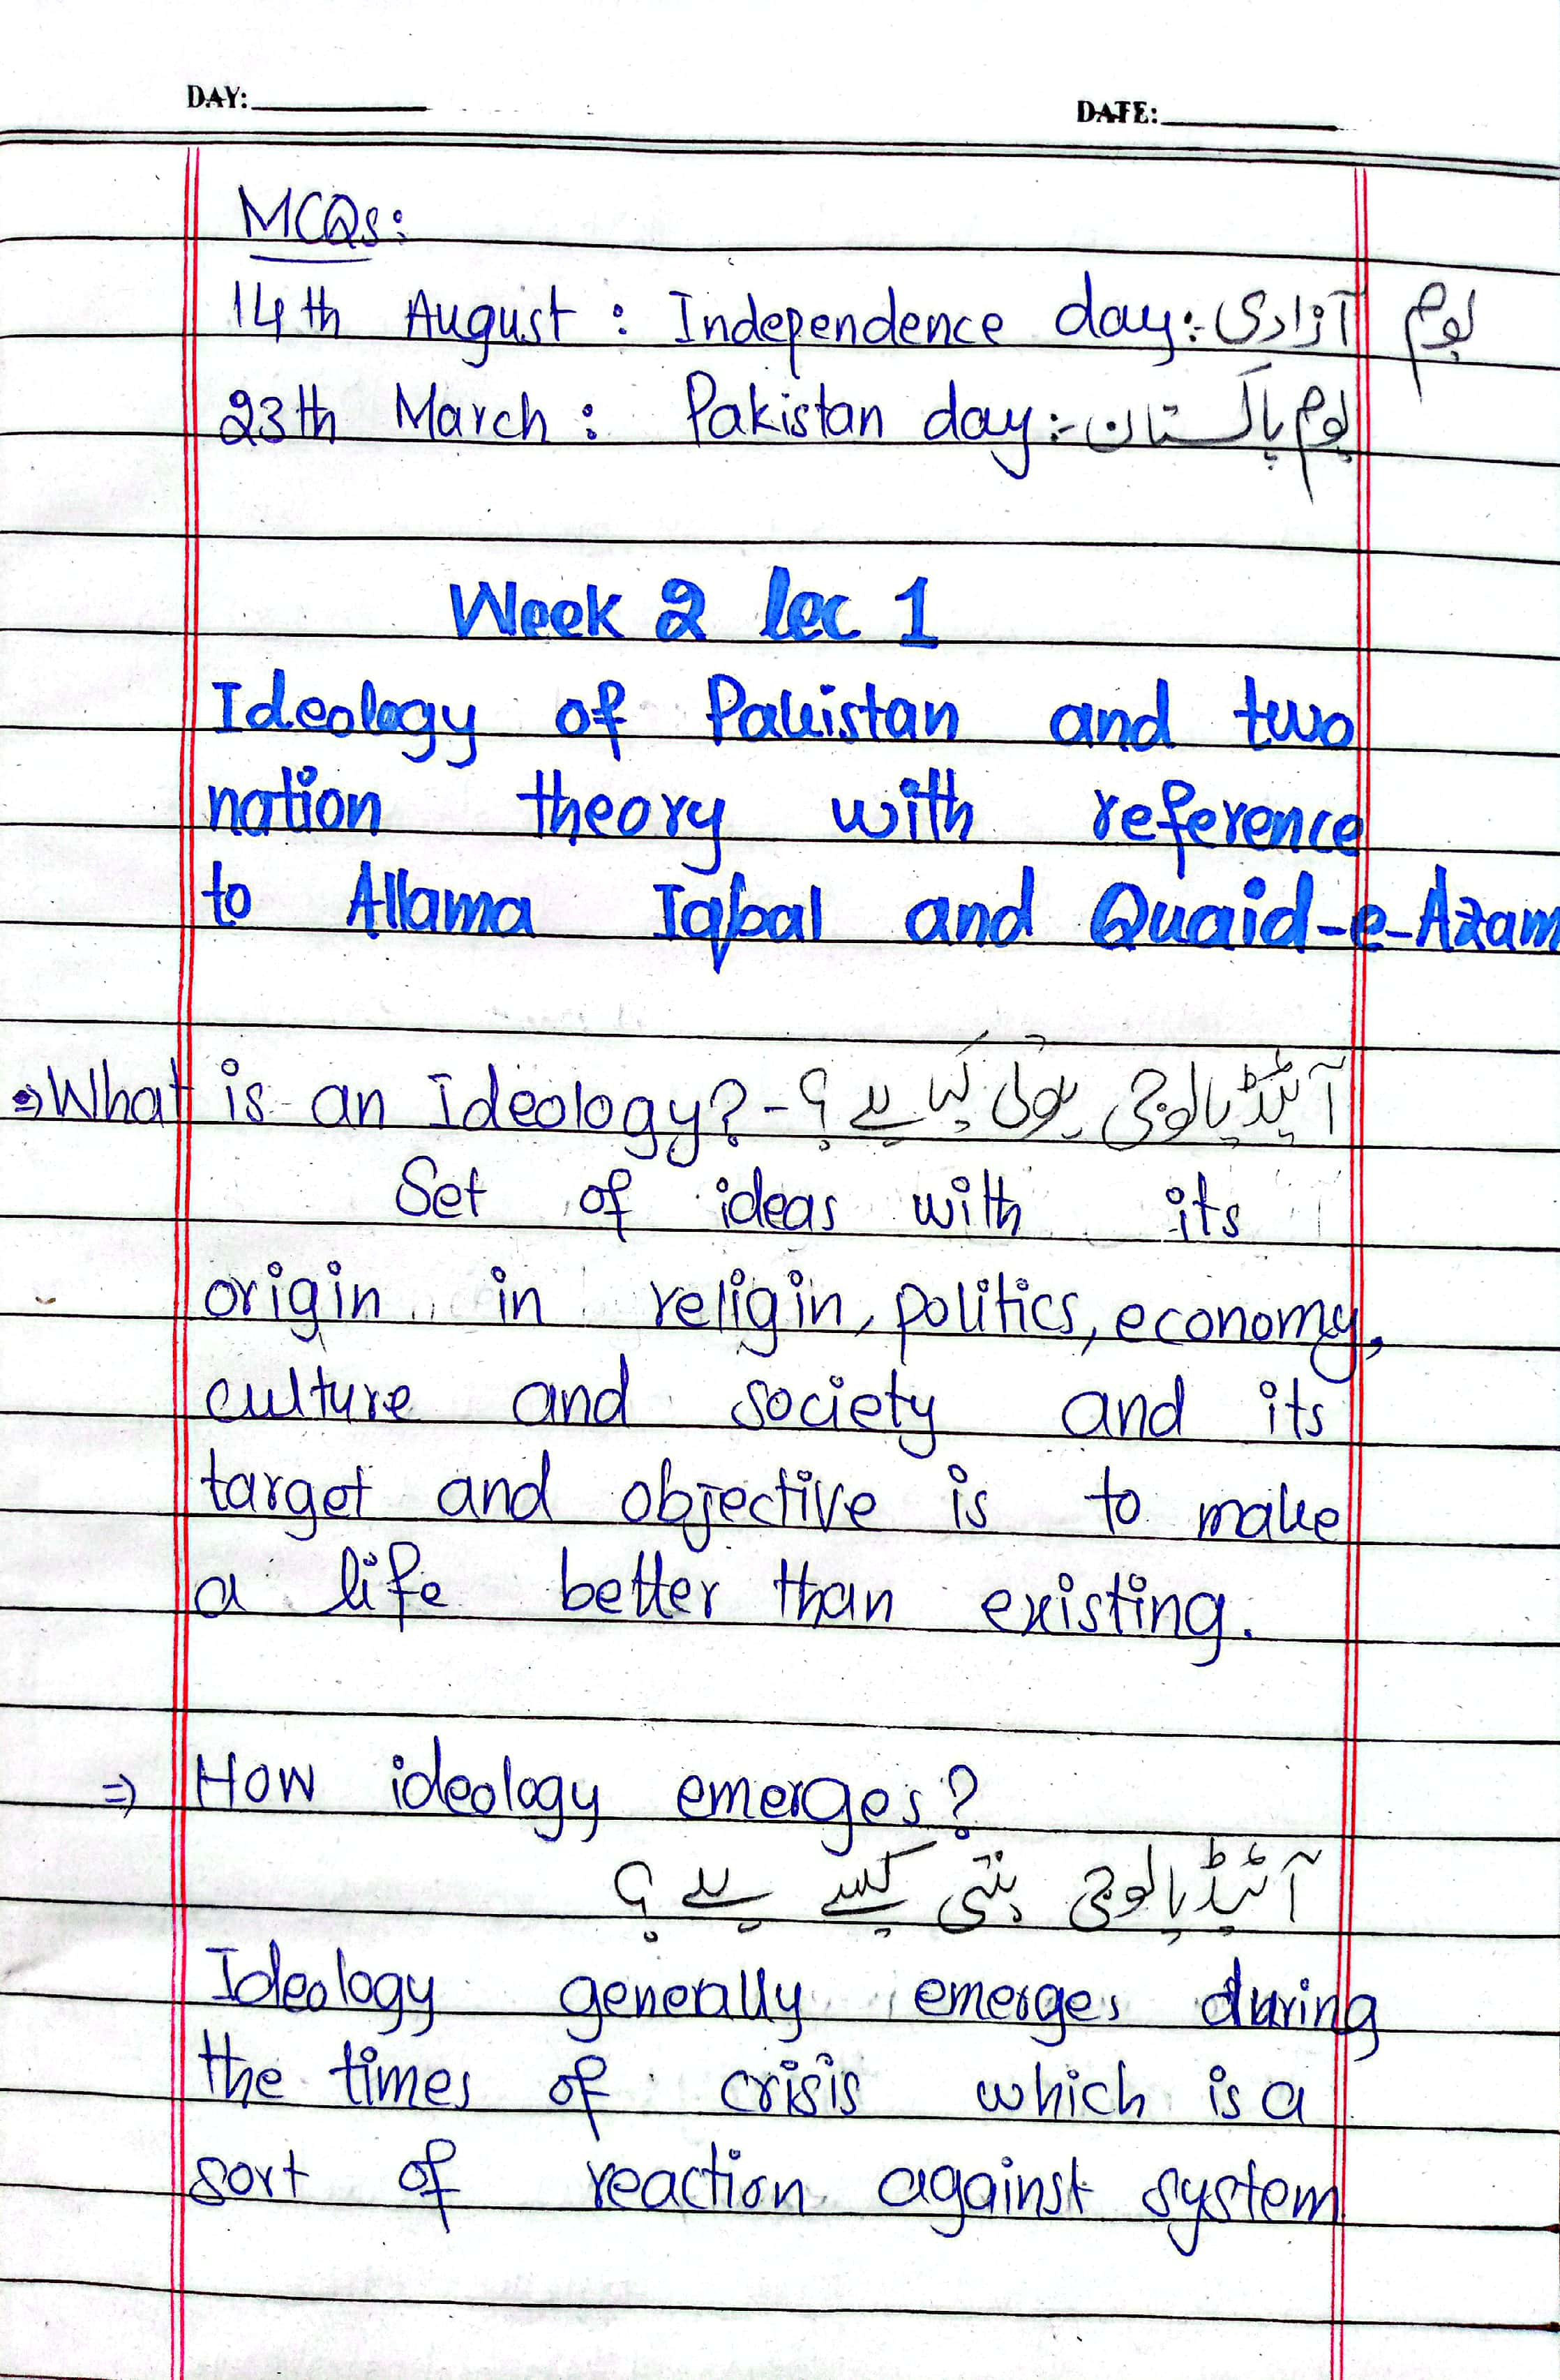 DAY:
DATE:
MCQs:
14th August : Independence day:- یوم آزادی
23th March : Pakistan day:- یوم پاکستان
Week 2 lec 1
Ideology of Pakistan and two
nation theory with reference
to Allama Iqbal and Quaid-e-Azam
⇒ What is an Ideology? - آئیڈیالوجی ہوتی کیا ہے؟
Set of ideas with its
origin in religin, politics, economy,
culture and society and its
target and objective is to make
a life better than existing.
⇒ How ideology emerges?
آئیڈیالوجی بنتی کیسے ہے؟
Ideology generally emerges during
the times of crisis which is a
sort of reaction against system